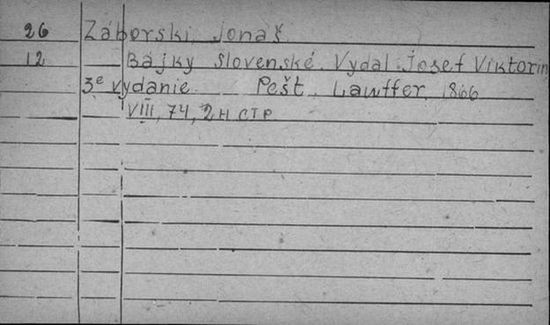 26 Záborski, Jonáš.
12 Bájky slovenské. Vydal Josef Viktorin
3e vydanie Pešt. Lauffer. 1866
VIII, 74, 2 н. стр